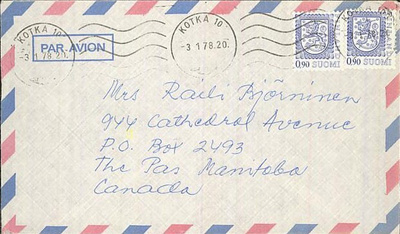 KOTKA 10
-3 1.78.20.
PAR AVION
KOTKA 10
-3 1.78.20.
0,90 SUOMI
0,90 SUOMI
Mrs Raili Björninen
944 Cathedral Avenue
P.O. Box 2493
The Pas Manitoba
Canada